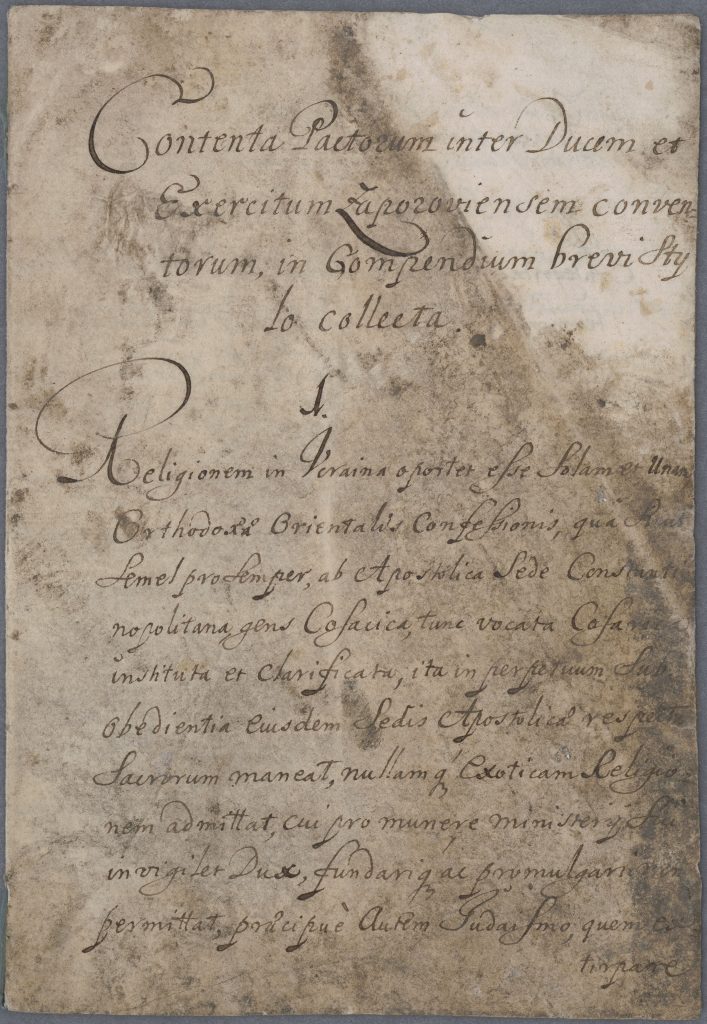 Contenta Pactorum inter Ducem et
Exercitum Zaporoviensem conven=
torum, in Compendium brevi Sty
lo collecta.
1.
Religionem in Ucraina oportet esse Solam et Unam
Orthodoxæ Orientalis Confessionis, quâ
Semel pro Semper, ab Apostolica Sede Constanti
nopolitana, gens Cosacica, tunc vocata
instituta et Clarificata, ita in perpetuum Sub
Obedientia Eiusdem Sedis Apostolicæ respectu
Sacrorum maneat, nullamq́ Exoticam Religio
nem admittat, cui pro munere ministerij Sui
invigilet Dux, fundariq́ ac promulgari non
permittat, præcipuè Autem Judaismo, quem ex
tirpare